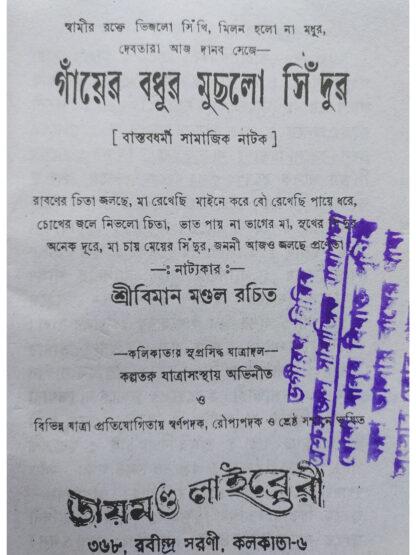 স্বামীর রক্তে ভিজলো সিঁথি, মিলন হলো না মধুর,
দেবতারা আজ দানব সেজে—
গাঁয়ের বধুর মুছলো সিঁদুর
[ বাস্তবধর্মী সামাজিক নাটক ]
রাবণের চিতা জলছে, মা রেখেছি মাইনে করে বৌ রেখেছি পায়ে ধরে,
চোখের জলে নিভলো চিতা, ভাত পায় না ভাগের মা, সুখের
অনেক দূরে, মা চায় মেয়ের সিঁদুর, জননী আজও জলছে প্রণেতা
—ঃ নাট্যকার ঃ—
শ্রীবিমান মণ্ডল রচিত
—কলিকাতার সুপ্রসিদ্ধ যাত্রাদল—
কল্পতরু যাত্রাসংস্থায় অভিনীত
ও
বিভিন্ন যাত্রা প্রতিযোগিতায় স্বর্ণপদক, রৌপ্যপদক ও শ্রেষ্ঠ
ডায়মণ্ড লাইব্রেরী
৩৬৮, রবীন্দ্র সরণী, কলকাতা-৬
সামাজিক